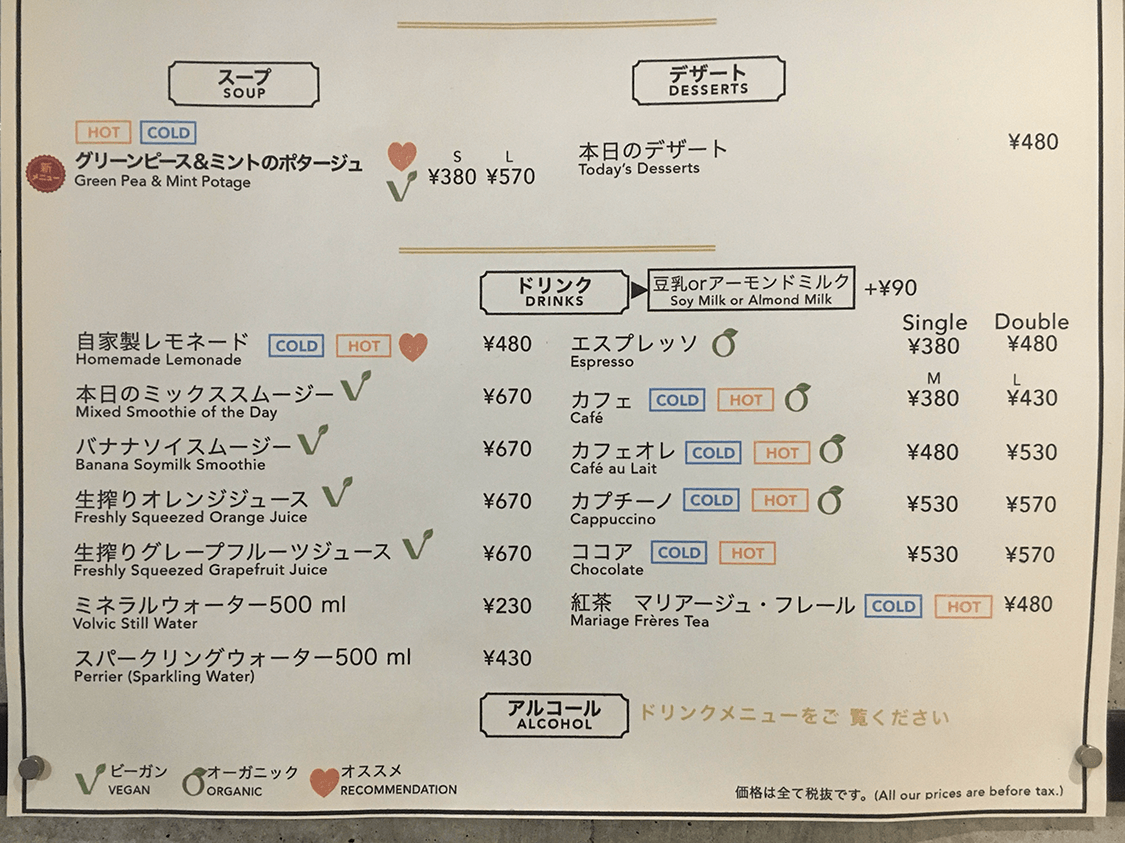 スープ
SOUP
HOT COLD
新
メニュー
グリーンピース&ミントのポタージュ
Green Pea & Mint Potage
S L
¥380 ¥570
デザート
DESSERTS
本日のデザート ¥480
Today's Desserts
ドリンク
DRINKS
豆乳orアーモンドミルク
Soy Milk or Almond Milk
+¥90
自家製レモネード COLD HOT ¥480
Homemade Lemonade
本日のミックススムージー ¥670
Mixed Smoothie of the Day
バナナソイスムージー ¥670
Banana Soymilk Smoothie
生搾りオレンジジュース ¥670
Freshly Squeezed Orange Juice
生搾りグレープフルーツジュース ¥670
Freshly Squeezed Grapefruit Juice
ミネラルウォーター500 ml ¥230
Volvic Still Water
スパークリングウォーター500 ml ¥430
Perrier (Sparkling Water)
Single Double
エスプレッソ ¥380 ¥480
Espresso
M L
カフェ COLD HOT ¥380 ¥430
Café
カフェオレ COLD HOT ¥480 ¥530
Café au Lait
カプチーノ COLD HOT ¥530 ¥570
Cappuccino
ココア COLD HOT ¥530 ¥570
Chocolate
紅茶 マリアージュ・フレール COLD HOT ¥480
Mariage Frères Tea
アルコール
ALCOHOL
ドリンクメニューをご 覧ください
V ビーガン
VEGAN
オーガニック
ORGANIC
オススメ
RECOMMENDATION
価格は全て税抜です。(All our prices are before tax.)